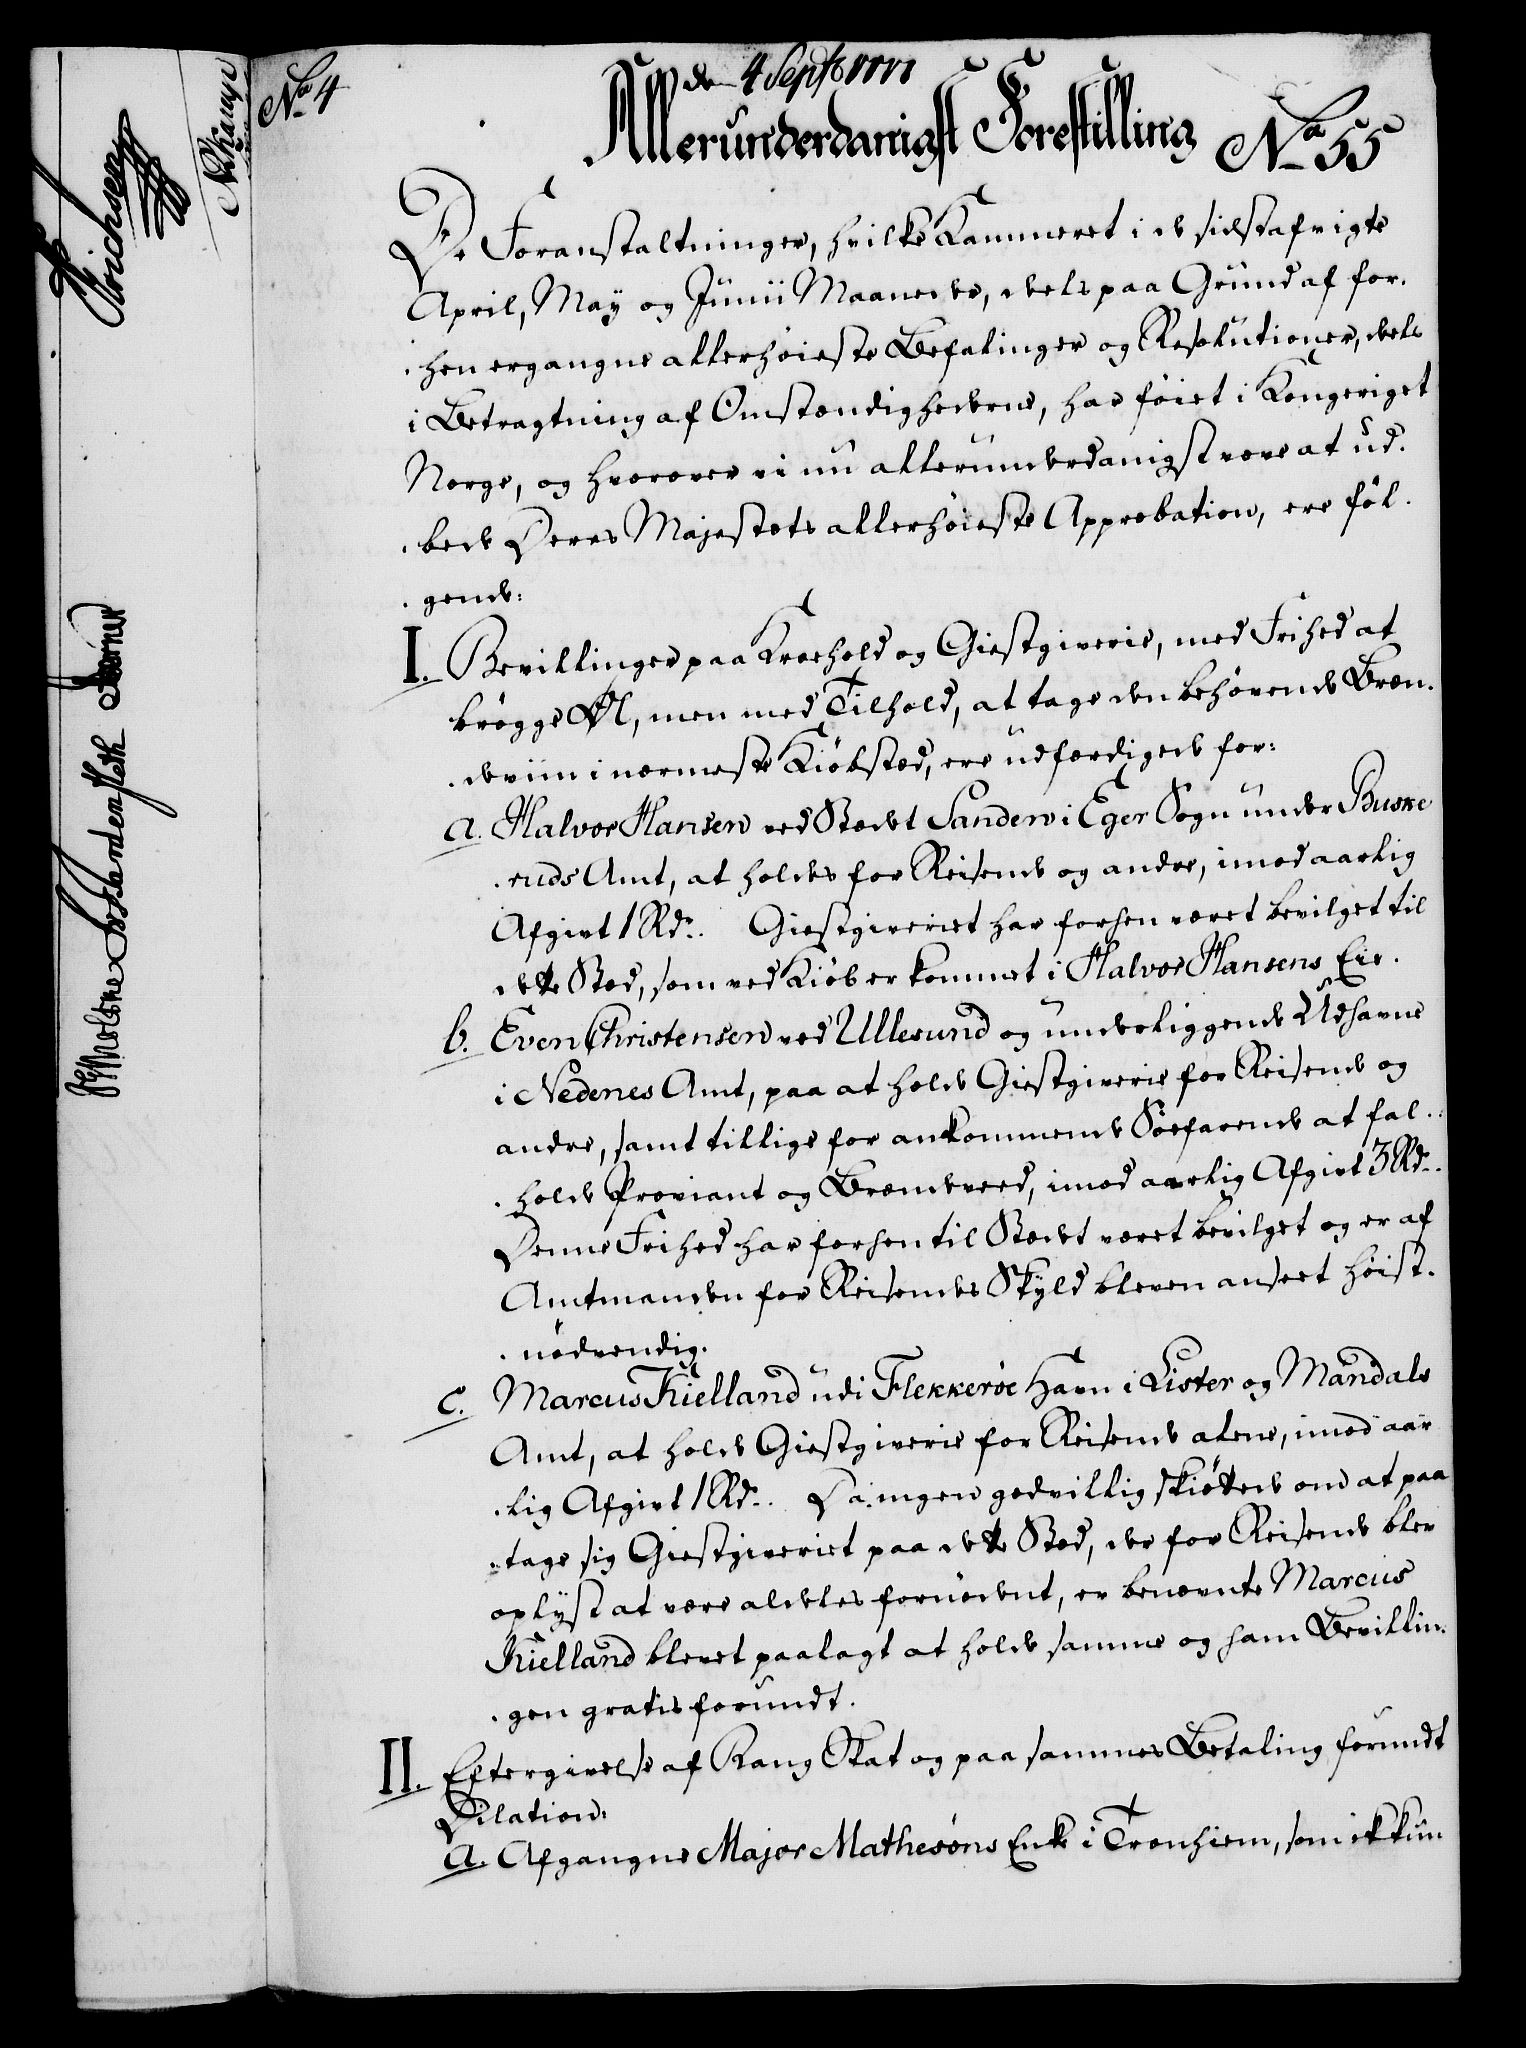 No 4
de 4 Septbr
Allerunderdanigst Forestilling No 55
De Foranstaltninger, hvilke Kammeret i de sidstafvigte
April, May og Junii Maaneder, deels paa Grund af for-
-hen ergangne allerhöieste Befalinger og Resolutioner, deels
i Betragtning af Omstændighederne, har föiet i Kongeriget
Norge, og hvorover vi nu allerunderdanigst vove at ud-
-bede Deres Majestæts allerhöieste Approbation, ere föl-
-gende:
I. Bevillinger paa Kroehold og Giestgiverie, med Frihed at
brögge Öl, men med Tilhold, at tage den behövende Bræn-
-deviin i nærmeste Kiöbstæd, ere udfærdigede for:
a. Halvor Hansen ved Stædet Sanden i Eger Sogn under Buske
-ruds Amt, at holdes for Reisende og andre, imod aarlig
Afgivt 1 Rdr. Giestgiveriet har forhen været bevilget til
dette Stæd, som ved Kiöb er kommet i Halvor Hansens Eie.
b. Even Christensen ved Ullesund og underliggende Udhavne
i Nedenes Amt, paa at holde Giestgiverie for Reisende og
andre, samt tillige for ankommende Söefarende at fal-
-holde Proviant og Brændeveed, imod aarlig Afgivt 3 Rdr.
Denne Frihed har forhen til Stædet været bevilget og er af
Amtmanden for Reisendes Skyld bleven anseet höist-
-nödvendig.
c. Marcus Kielland udi Flekkeröe Havn i Lister og Mandals
Amt, at holde Giestgiverie for Reisende alene, imod aar
-lig Afgivt 1 Rdr. Da ingen godvillig skiöttede om at paa
-tage sig Giestgiveriet paa dette Stæd, der for Reisende blev
oplyst at være aldeles fornödent, er benævnte Marcus
Kielland blevet paalagt at holde samme og ham Bevillin-
-gen gratis forundt.
II. Eftergivelse af Rang Skat og paa sammes Betaling forundt
Dilation:
a. Afgangne Major Mathesons Enke i Tronhiem, som ikkun